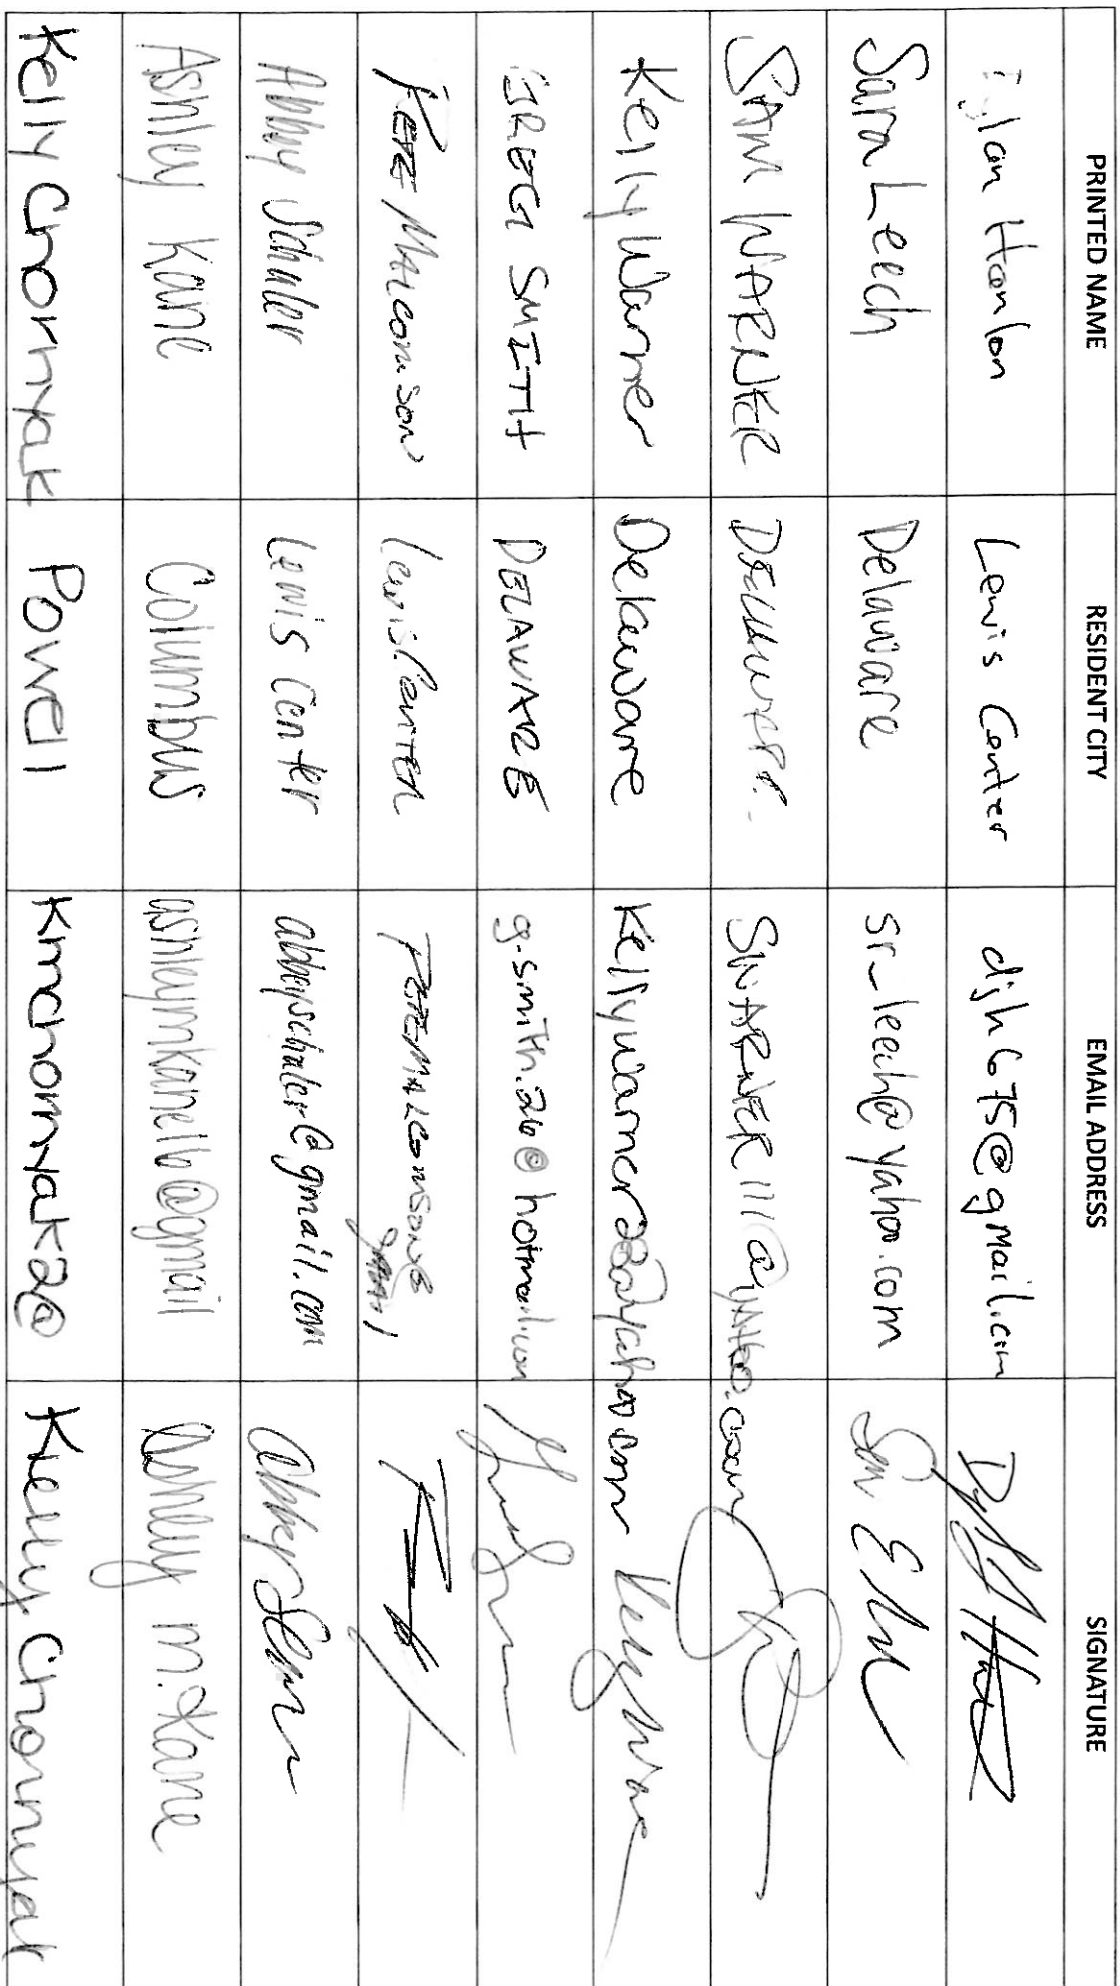 PRINTED NAME RESIDENT CITY EMAIL ADDRESS SIGNATURE
Hanlon Lewis Center djh675@gmail.com
Sara Leech Delaware sr_leech@yahoo.com
SAM WARNER
Kelly Warner Delaware
GREG SMITH DELAWARE g.smith.26@hotmail.com
PETE MALCOMSON Lewis Center PETEMALCOMSON@gmail
Abby Schuler Lewis Center abbeyschuler@gmail.com
Ashley Kane Columbus ashleymkane16@gmail Ashley M. Kane
Kelly Chornyak Powell kmchornyak2@ Kelly Chornyak